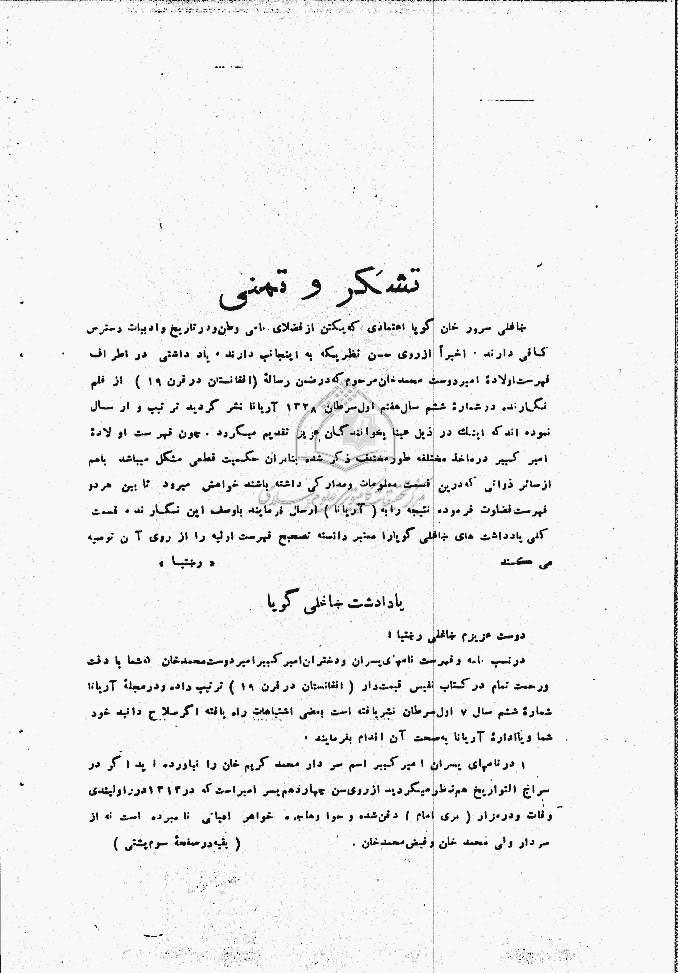 تشکر و تمنی
ښاغلی سرور خان گویا اعتمادی که یکتن از فضلای نامی وطن و در تاریخ و ادبیات دسترس
کافی دارند . اخیراً از روی حسن نظریکه به اینجانب دارند ، یاد داشتی در اطراف
فهرست اولادهٔ امیر دوست محمدخان مرحوم که در ضمن رسالهٔ (افغانستان در قرن ۱۹ ) از قلم
نگارنده در شمارهٔ ششم سال هفتم اول سرطان ۱۳۲۸ آریانا نشر گردید ترتیب و ارسال
نموده اند که اینك در ذیل عیناً بخوانندگان عزیز تقدیم میگردد . چون فهرست اولادهٔ
امیر کبیر در ماخذ مختلفه طور مختلف ذکر شده بنابران حکمیت قطعی مشکل میباشد باهم
از سائر ذواتی که درین قسمت معلومات و مدارکی داشته باشند خواهش میرود تا بین هر دو
فهرست قضاوت فرموده نتیجه را به ( آریانا ) ارسال فرمایند باوصف این نگارنده قسمت
کلی یادداشت های ښاغلی گویا را معتبر دانسته تصحیح فهرست اولیه را از روی آن توصیه
می کند « رښتیا »
یادداشت ښاغلی گویا
دوست عزیزم ښاغلی رښتیا !
در نسب نامه و فهرست نامهای پسران و دختران امیر کبیر امیر دوست محمدخان که شما با دقت
و زحمت تمام در کتاب نفیس قیمت‌دار ( افغانستان در قرن ۱۹ ) ترتیب داده و در مجلهٔ آریانا
شمارهٔ ششم سال ۷ اول سرطان نشر یافته است بعضی اشتباهات راه یافته اگر صلاح دانید خود
شما و یا ادارهٔ آریانا به صحت آن اقدام بفرمایند .
۱ در نامهای پسران امیر کبیر اسم سردار محمد کریم خان را نیاورده اید اگر در
سراج التواریخ هم نظر میگردید از روی سن چهاردهم پسر امیر است که در ۱۳۱۳ در راولپندی
وفات و در مزار ( بری امام ) دفن شده و حوا و هاجره خواهر اعیانی نامبرده است نه از
سردار ولی محمد خان و فیض محمدخان . ( بقیه در صفحهٔ سوم پشتی )